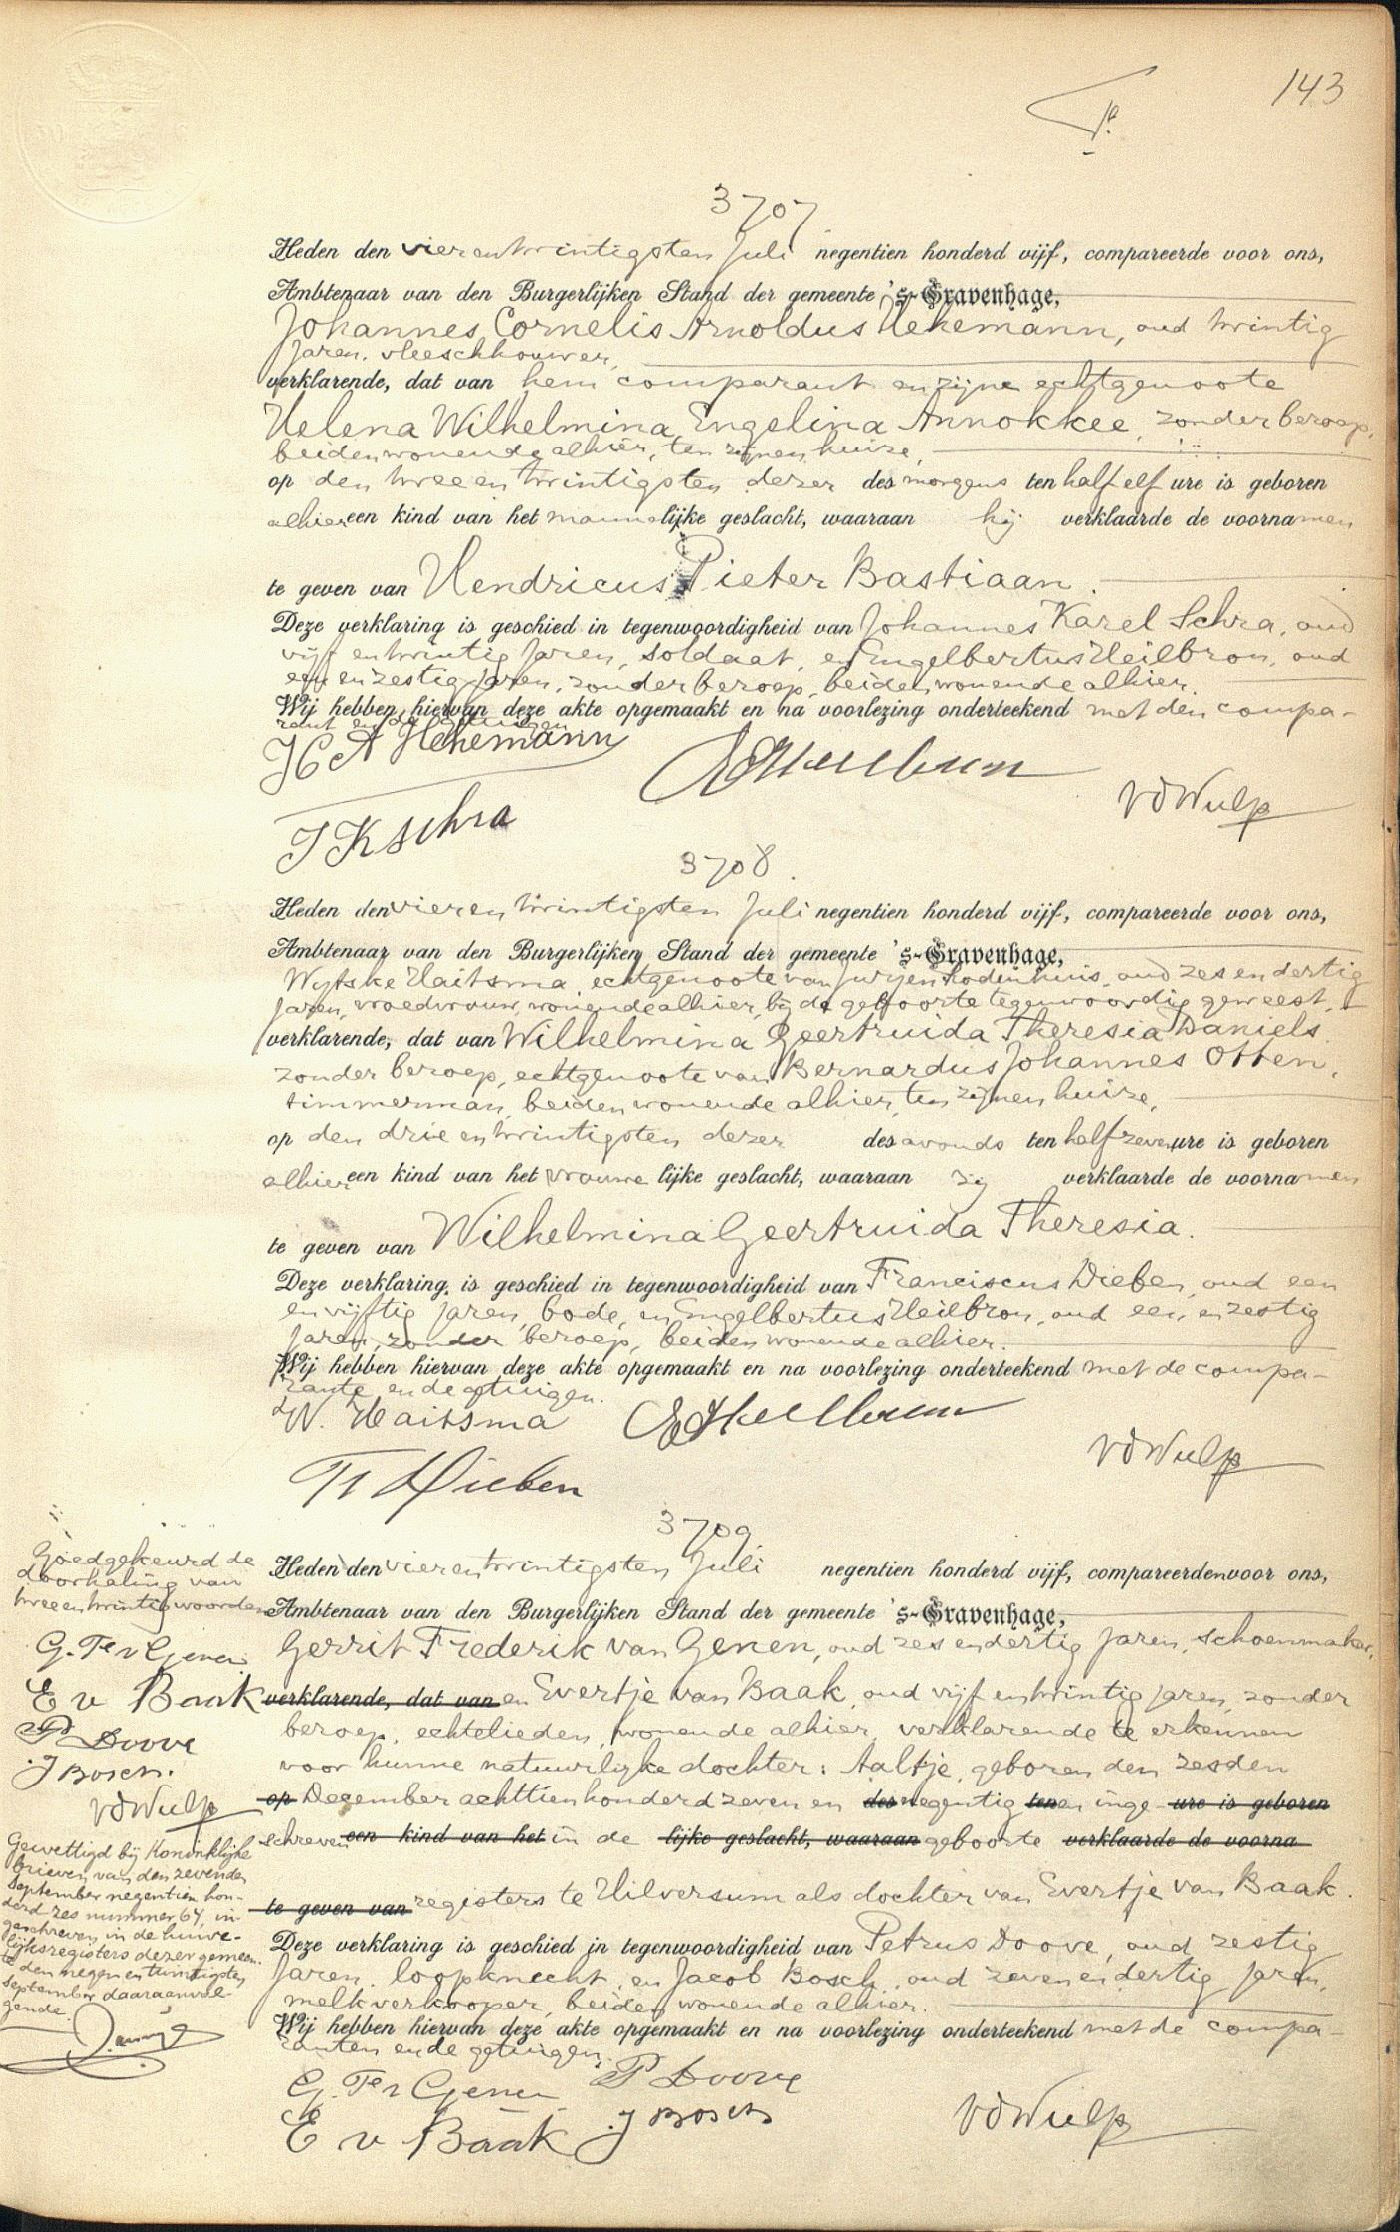 143
3707
Heden den vier en twintigsten Juli negentien honderd vijf, compareerde voor ons,
Ambtenaar van den Burgerlijken Stand der gemeente 's-Gravenhage,
Johannes Cornelis Arnoldus Hekemann, oud twintig
jaren, vleeschhouwer,
verklarende, dat van hem comparant en zijne echtgenoote
Helena Wilhelmina Engelina Annokkee, zonder beroep,
beiden wonende alhier, ten zijnen huize,
op den twee en twintigsten dezer des morgens ten half elf ure is geboren
alhier een kind van het mannelijke geslacht, waaraan hij verklaarde de voornamen
te geven van Hendricus Pieter Bastiaan.
Deze verklaring is geschied in tegenwoordigheid van Johannes Karel Schra, oud
vijf en twintig jaren, soldaat, en Engelbertus Heilbron, oud
een en zestig jaren, zonder beroep, beiden wonende alhier.
Wij hebben hiervan deze akte opgemaakt en na voorlezing onderteekend met den compa-
rant en de getuigen
Hekemann
VDWulp
JK Schra
3708.
Heden den vier en twintigsten Juli negentien honderd vijf, compareerde voor ons,
Ambtenaar van den Burgerlijken Stand der gemeente 's-Gravenhage,
Wytske Haitsma, echtgenoote van Jurjen Rodenhuis, oud zes en dertig
jaren, vroedvrouw, wonende alhier, bij de geboorte tegenwoordig geweest,
verklarende, dat van Wilhelmina Geertruida Theresia Daniels,
zonder beroep, echtgenoote van Bernardus Johannes Otten,
timmerman, beiden wonende alhier, ten zijnen huize,
op den drie en twintigsten dezer des avonds ten half zeven ure is geboren
alhier een kind van het vrouwelijke geslacht, waaraan zij verklaarde de voornamen
te geven van Wilhelmina Geertruida Theresia.
Deze verklaring is geschied in tegenwoordigheid van Franciscus Dieben, oud een
en vijftig jaren, bode, en Engelbertus Heilbron, oud een en zestig
jaren, zonder beroep, beiden wonende alhier.
Wij hebben hiervan deze akte opgemaakt en na voorlezing onderteekend met de compa-
rante en de getuigen.
W. Haitsma
VDWulp
Fr Dieben
3709
Heden den vier en twintigsten Juli negentien honderd vijf, compareerden voor ons,
Ambtenaar van den Burgerlijken Stand der gemeente 's-Gravenhage,
Gerrit Frederik van Genen, oud zes en dertig jaren, schoenmaker,
verklarende, dat van en Evertje van Baak, oud vijf en twintig jaren, zonder
beroep, echtelieden, wonende alhier, verklarende te erkennen
voor hunne natuurlijke dochter: Aaltje, geboren den zesden
op December achttienhonderd zeven en des negentig ten en inge- ure is geboren
schreven een kind van het in de lijke geslacht, waaraan geboorte verklaarde de voorna
te geven van registers te Hilversum als dochter van Evertje van Baak.
Deze verklaring is geschied in tegenwoordigheid van Petrus Doove, oud zestig
jaren, loopknecht, en Jacob Bosch, oud zeven en dertig jaren,
melkverkooper, beiden wonende alhier.
Wij hebben hiervan deze akte opgemaakt en na voorlezing onderteekend met de compa-
ranten en de getuigen.
G. Fr v Genen P Doove
E v Baak J Bosch
VDWulp
Goedgekeurd de
doorhaling van
twee en twintig woorden
G. Fr v Genen
E v Baak
P Doove
J Bosch.
VDWulp
Gewettigd bij Koninklijke
brieven van den zevenden
September negentien hon-
derd zes nummer 64, in-
geschreven in de huwe-
lijksregisters dezer gemeen-
te den negen en twintigsten
September daaraanvol-
gende